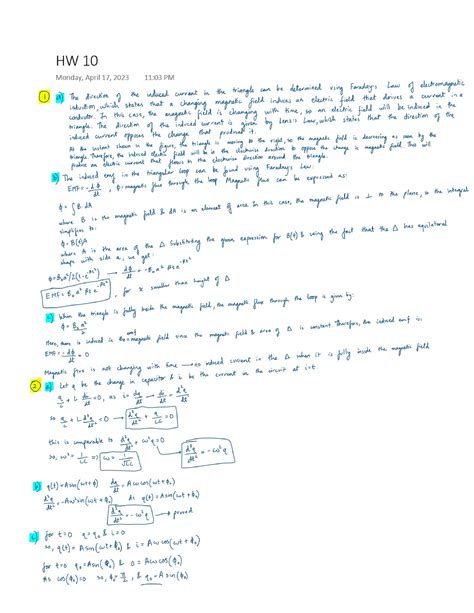 HW 10
Monday, April 17, 2023 11:03 PM
1 a) The direction of the induced current in the triangle can be determined using Faraday's Law of electromagnetic
induction, which states that a changing magnetic field induces an electric field that drives a current in a
conductor. In this case, the magnetic field is changing with time, so an electric field will be induced in the
triangle. The direction of the induced current is given by Lenz's Law, which states that the direction of the
induced current opposes the change that produced it.
At the instant shown in the figure, the triangle is moving to the right, so the magnetic field is decreasing as seen by the
triangle. Therefore, the induced electric field will be in the clockwise direction to oppose the change in magnetic field. This will
induce an electric current that flows in the clockwise direction around the triangle.
b) The induced emf in the triangular loop can be found using Faraday's Law.
EMF = - dϕ/dt , ϕ = magnetic flux through the loop. Magnetic flux can be expressed as:
ϕ = ∫ B. dA
where B is the magnetic field & dA is an element of area. In this case, the magnetic field is ⊥ to the plane, so the integral
simplifies to:
ϕ = B(t)A
where A is the area of the Δ. Substituting the given expression for B(t) & using the fact that the Δ has equilateral
shape with side a, we get:
for x smaller than height of Δ
c) When the triangle is fully inside the magnetic field, the magnetic flux through the loop is given by:
emf
Here, no is induced in the magnetic field since the magnetic field & area of Δ is constant. Therefore, the induced emf is:
EMF = - dϕ/dt = 0
Magnetic flux is not changing with time → no induced current in the Δ when it is fully inside the magnetic field
2 a) Let q be the change in capacitor & i be the current in the circuit at i=t.
q/c + L di/dt = 0, as i = dq/dt → di/dt = d²q/dt²
so q/c + L d²q/dt² = 0 → d²q/dt² + q/Lc = 0
this is comparable to d²q/dt² + ω²q = 0
so, ω² = 1/LC ⇒ ω = 1/√LC
d²q/dt² = -ω²q
b) q(t) = A sin(ωt + ϕ) dq/dt = Aω cos(ωt + ϕ)
d²q/dt² = -Aω² sin(ωt + ϕ) As q(t) = A sin(ωt + ϕ)
d²q/dt² = -ω²q → proved
c) for t=0 q = q₀ & i=0
so, q(t) = A sin(ωt + ϕ₀) & i = Aω cos(ωt + ϕ₀)
for t=0 q₀ = A sin(ϕ₀) & 0 = Aω cos(ϕ₀)
As cos(ϕ₀) = 0 so, ϕ₀ = π/2, & q₀ = A sin(ϕ₀)